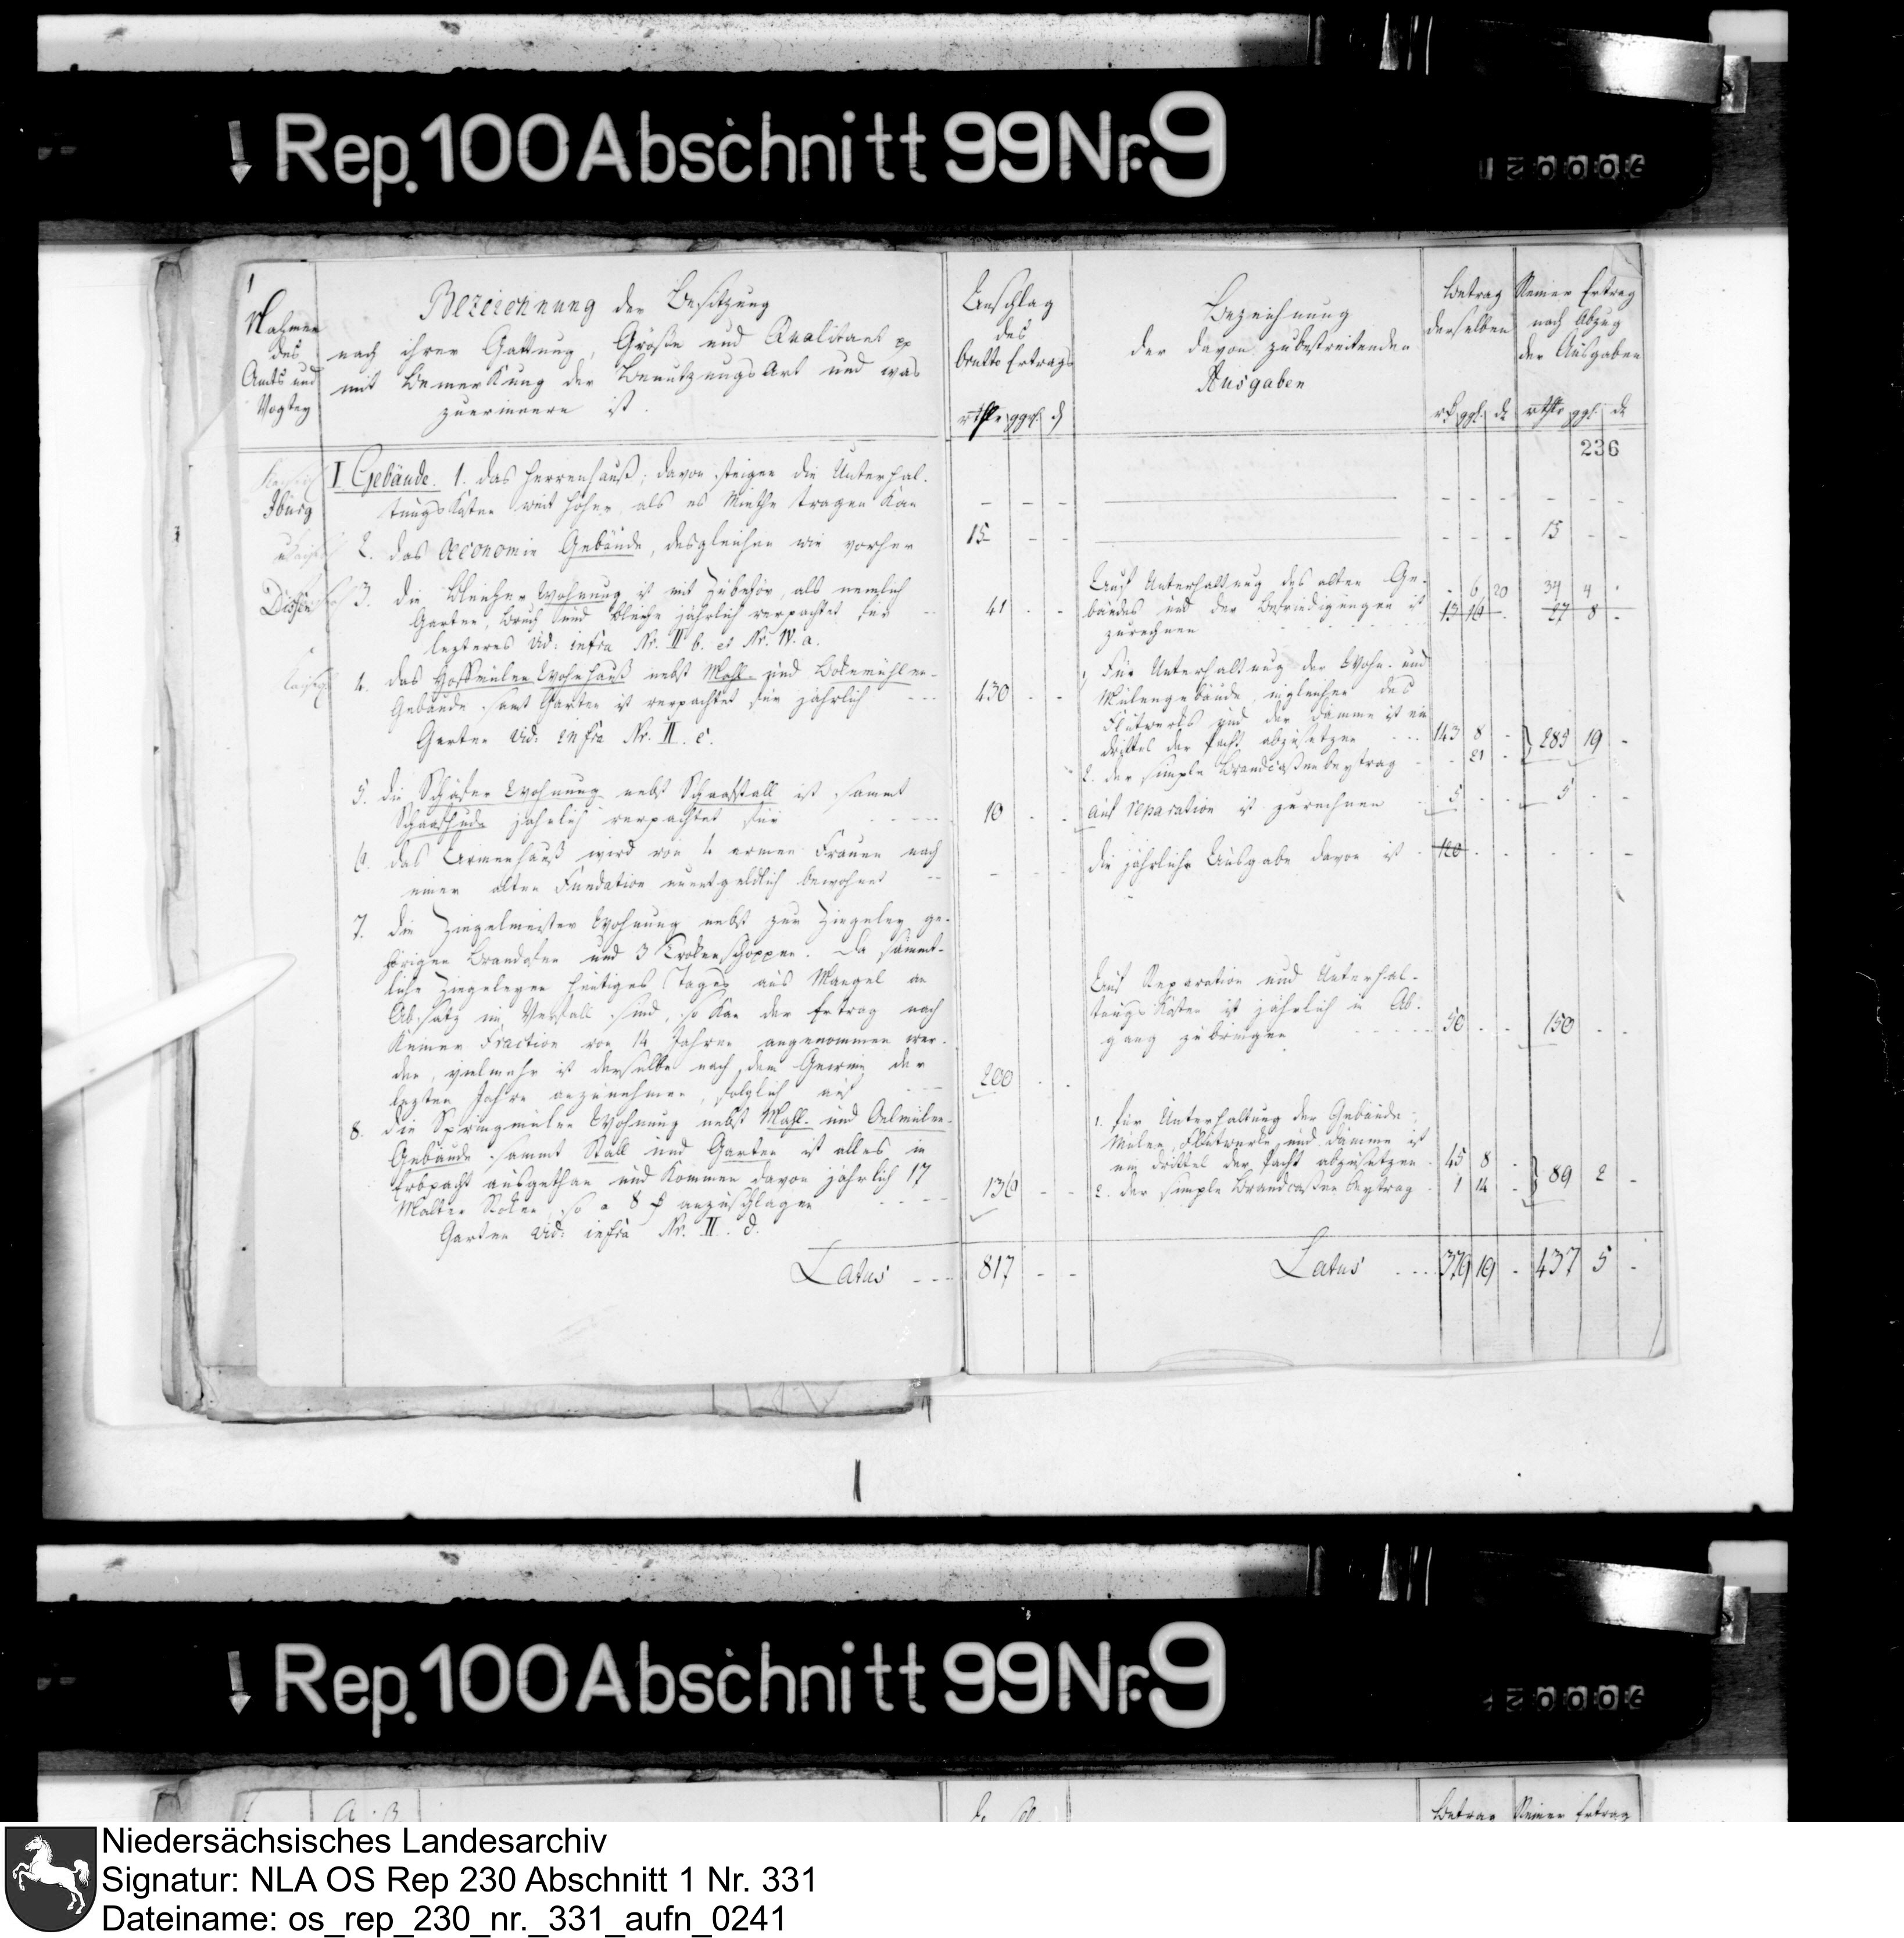 Rep. 100 Abschnitt 99 Nr. 9
120006
1
Nahmen
des
Amts und
Vogtey
Bezeichnung der Besitzung
nach ihrer Gattung, Größe und Qualitaet pp
mit Bemerkung der Benutzungs Art und was
zuerinnern ist.
Anschlag
des
Brutto Ertrags
rthlr ggl. d
Bezeichnung
der davon zubestreitenden
Ausgaben
Betrag
derselben
rt ggl. d
Reiner Ertrag
nach Abzug
der Ausgaben
rthlr ggl. d
236
Iburg
Dissen
I Gebäude. 1. das Herrenhauß; davon steigen die Unterhal-
tungs Kosten weit höher als es Miethe tragen kan
2. das Oeconomie Gebäude, desgleichen wie vorher
15 - -
15 - -
3. die Bleicher Wohnung ist mit Zubehör, als nemlich
Garten, Bruch und Bleiche jährlich verpachtet für
lezteres vid: infra Nr. II b. et Nr. IV. a.
41 - -
Auf Unterhaltung des alten Ge-
bäudes und der Befriedigungen ist
zurechnen
- 6 20
13 16 -
34 4 -
27 8 -
4. das Hoffmülen Wohnhauß nebst Mahl- und Bokemühlen-
Gebäude samt Garten ist verpachtet für jährlich
Garten vid: infra Nr. II. c.
430 - -
Für Unterhaltung der Wohn- und
Mülengebäude, ingleichen des
Flutwerks und der Dämme ist ein
drittel der Pacht abzusetzen
143 8 -
2. der simple Brandcassenbeytrag
- 21 -
285 19 -
5. die Schäfer Wohnung nebst Schaafstall ist sammt
Schaafhude jährlich verpachtet für
10 - -
auf reparation ist zurechnen
5 - -
5 - -
6. das Armenhauß wird von 4 armen Frauen nach
einer alten Fundation unentgeldlich bewohnet
- - -
die jährliche Ausgabe davon ist
120 - -
- - -
7. die Ziegelmeister Wohnung nebst zur Ziegeley ge-
hörigen Brandofen und 3 Trokenschoppen. Da sämmt-
liche Ziegeleyen heutiges Tages aus Mangel an
Absatz im Verfall sind, so kan der Ertrag nach
keiner Fraction von 14 Jahren angenommen wer-
den, vielmehr ist derselbe nach dem Gewinn der
lezten Jahre anzunehmen, folglich auf
200 - -
Auf Reparation und Unterhal-
tungs Kosten ist jährlich in Ab-
gang zubringen
50 - -
150 - -
8. die Springmülen Wohnung nebst Mahl- und Oelmülen-
Gebäude sammt Stall und Garten ist alles in
Erbpacht ausgethan und kommen davon jährlich 17
Malter Roken, so a 8 rt anzuschlagen
Garten vid: infra Nr. II. d.
136 - -
1. für Unterhaltung der Gebäude
Mülen, Flutwerke und Dämme ist
ein drittel der Pacht abzusetzen
45 8 -
2. der simple Brandcassen Beytrag
1 14 -
89 2 -
Latus 817 - -
Latus 379 19 - 437 5 -
Rep. 100 Abschnitt 99 Nr. 9
Betrag Reiner Ertrag
Niedersächsisches Landesarchiv
Signatur: NLA OS Rep 230 Abschnitt 1 Nr. 331
Dateiname: os_rep_230_nr._331_aufn_0241